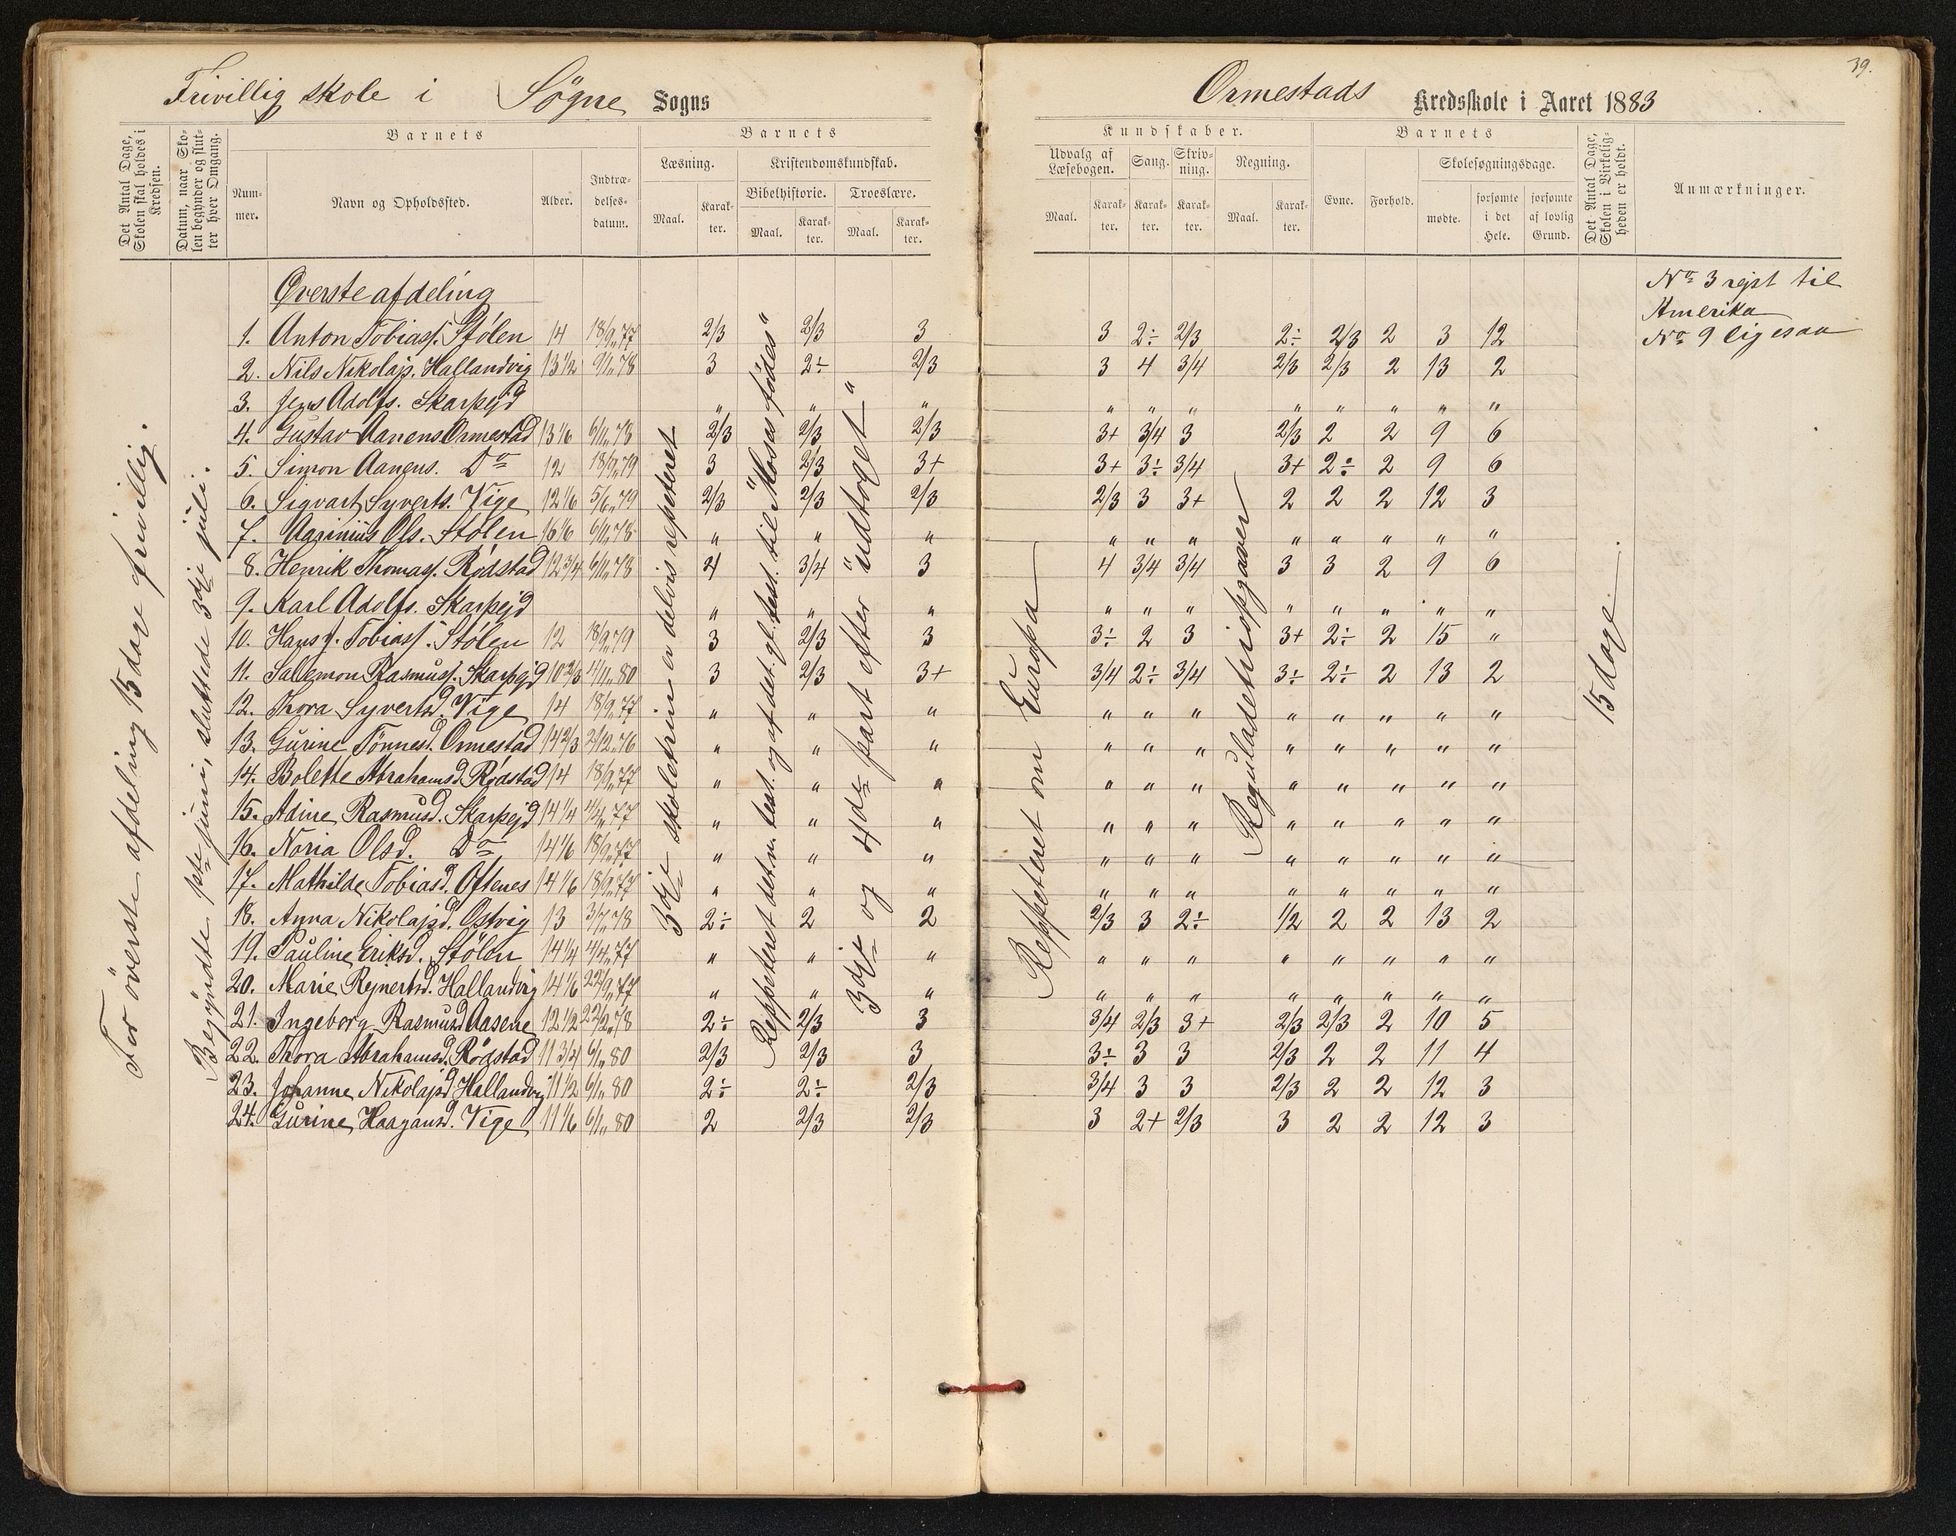 Frivillig skole i Søgne Sogns
Det Antal Dage, Skolen skal holdes i Kredsen.
Datum, naar Skolen begynder og slutter hver Omgang.
Barnets
Nummer.
Navn og Opholdssted.
Alder.
Indtrædelsesdatum.
Barnets
Læsning.
Maal.
Karakter.
Kristendomskundskab.
Bibelhistorie.
Maal.
Karakter.
Troeslære.
Maal.
Karakter.
For överste afdeling 15 dage frivillig.
Begyndte 1ste juni, sluttede 3dje juli.
3dje skoletrin er delvis repeteret
Reppeteret det n. test. og af det gl. test. til "Moses fødes"
3dje og 4de part efter "udtoget"
Øverste afdeling
1. Anton Tobiass. Stølen 14 18/9 77 2/3 2/3 3
2. Nils Nikolajs. Hallandvig 13 1/2 9/1 78 3 2÷ 2/3
3. Jens Adolfs. Skarpejd " " "
4. Gustav Aanens. Ormestad 13 1/6 6/11 78 2/3 2/3 2/3
5. Simon Aanens. Do 12 18/9 79 3 2/3 3+
6. Sigvart Syverts. Vige 12 1/6 5/6 79 2/3 2/3 2/3
7. Ols. Stølen 16 1/6 6/11 78 " " "
8. Henrik Thomass. Rødstad 12 3/4 6/11 78 4 3/4 3
9. Karl Adolfs. Skarpejd " " "
10. Hans J. Tobiass. Stølen 12 18/9 79 3 2/3 3
11. Salemon Rasmuss. Skarpejd 10 2/3 4/11 80 3 2/3 3+
12. Thora Syvertsd. Vige 14 18/9 77 " " "
13. Gurine Tønnesd. Ormestad 14 2/3 2/12 76 " " "
14. Bolette Abrahamsd. Rødstad 14 18/9 77 " " "
15. Adine Rasmusd. Skarpejd 14 1/4 4/4 77 " " "
16. Noria Olsd. Do 14 1/6 18/9 77 " " "
17. Mathilde Tobiasd. Oftenes 14 1/6 18/9 77 " " "
18. Anna Nikolajsd. Østvig 13 3/7 78 2÷ 2 2
19. Pauline Eriksd. Stølen 14 1/4 4/4 77 " " "
20. Marie Rejnertsd. Hallandvig 14 1/6 22/9 77 " " "
21. Ingeborg Rasmusd. Aasene 12 1/2 22/2 78 2÷ 2/3 3
22. Thora Abrahamsd. Rødstad 11 3/4 6/11 80 2/3 2/3 3
23. Johanne Nikolajsd. Hallandvig 11 1/2 6/11 80 2÷ 2÷ 2/3
24. Gurine Haagansd. Vige 11 1/6 6/11 80 2 2/3 2/3
39.
Ormestads Kredsskole i Aaret 1883
Kundskaber.
Udvalg af Læsebogen.
Maal.
Karakter.
Sang.
Karakter.
Skrivning.
Karakter.
Regning.
Maal.
Karakter.
Barnets
Evne.
Forhold.
Skolesøgningsdage.
mødte.
forsømte i det Hele.
forsømte af lovlig Grund.
Det Antal Dage, Skolen i Virkeligheden er holdt.
Anmærkninger.
Reppeteret om Europa
Reguladetriopgaver
15 dage
No 3 rejst til
Amerika
No 9 ligesaa
3 2÷ 2/3 2÷ 2/3 2 3 12
3 4 3/4 2/3 2/3 2 13 2
" " " " " " " "
3+ 3/4 3 2/3 2 2 9 6
3+ 3÷ 3/4 3+ 2÷ 2 9 6
2/3 3 3+ 2 2 2 12 3
" " " " " " " "
4 3/4 3/4 3 3 2 9 6
" " " " " " " "
3÷ 2 3 3+ 2÷ 2 15 "
3/4 2÷ 3/4 3÷ 2÷ 2 13 2
" " " " " " " "
" " " " " " " "
" " " " " " " "
" " " " " " " "
" " " " " " " "
" " " " " " " "
2/3 3 2÷ 1/2 2 2 13 2
" " " " " " " "
" " " " " " " "
3/4 2/3 3+ 2/3 2/3 2 10 5
3÷ 3 3 2/3 2 2 11 4
3/4 3 3 2/3 2 2 12 3
3 2+ 2/3 3 2 2 12 3